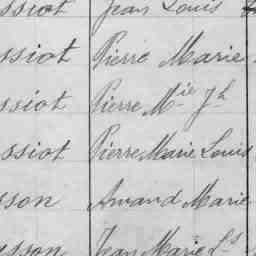 ssiot Jean Louis
ssiot Pierre Marie
ssiot Pierre Mie Jh
ssiot Pierre Marie Louis
sson Amand Marie
sson Jean Marie Ls